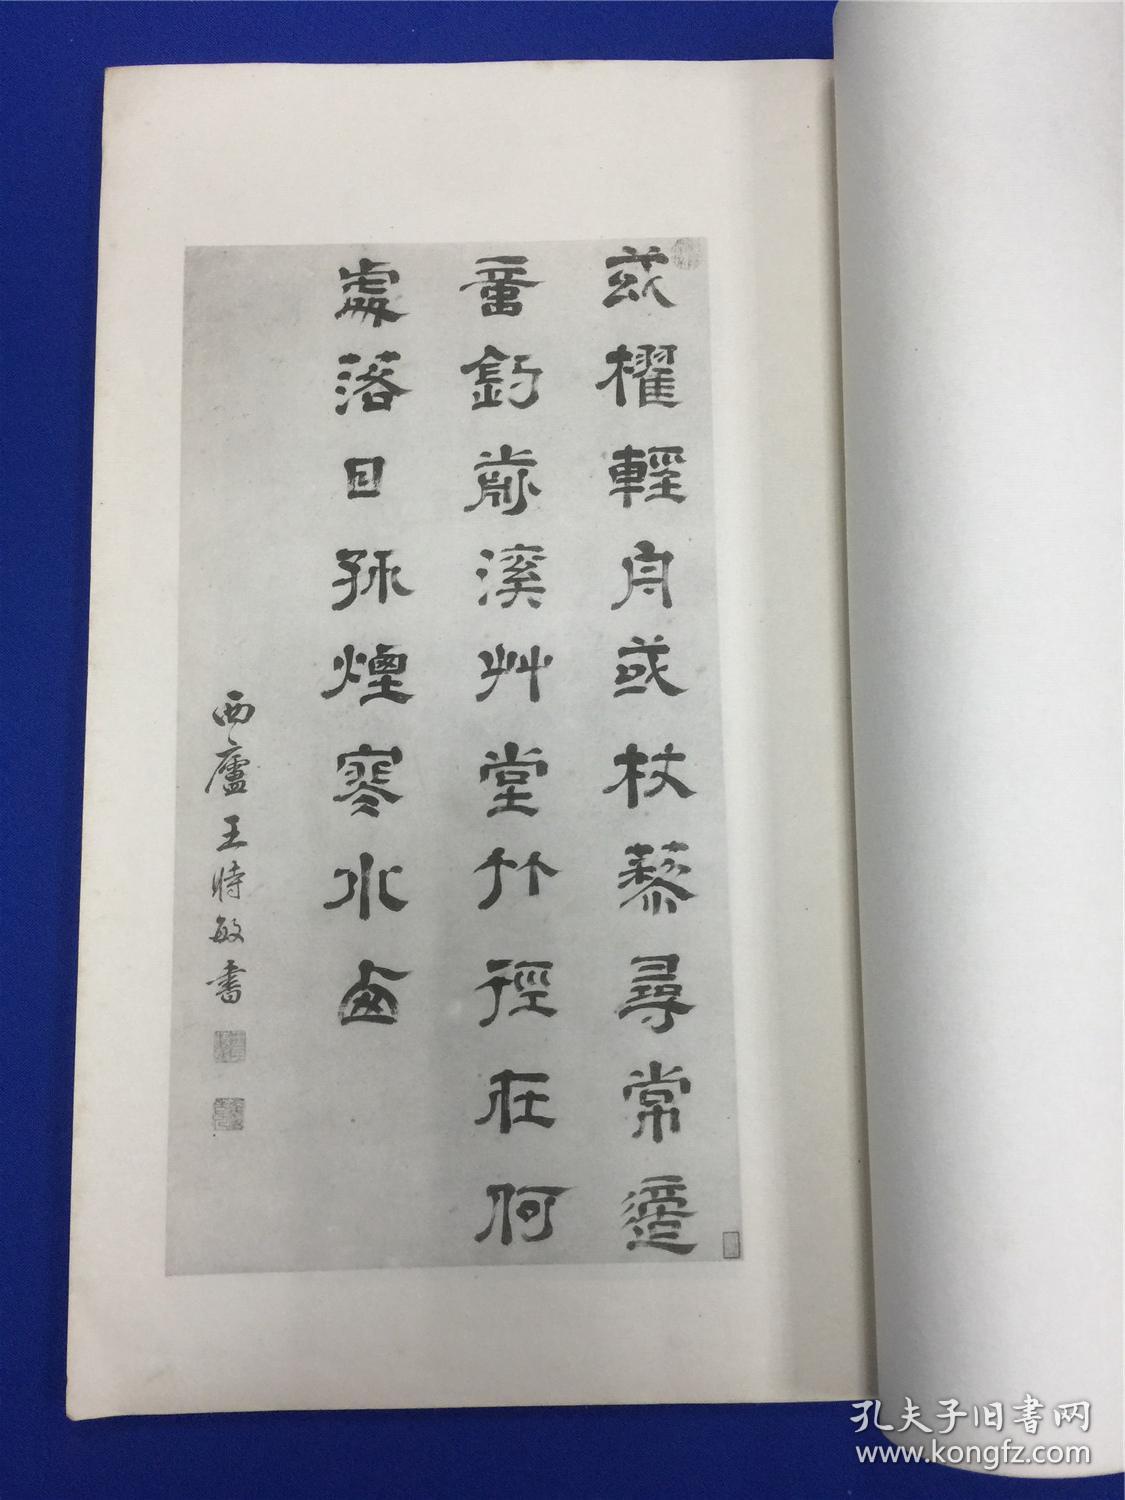 或櫂輕舟或杖藜尋常適
意釣前溪艸堂竹徑在何
處落日孤煙寒水西
西廬王時敏書
孔夫子旧书网
www.kongfz.com